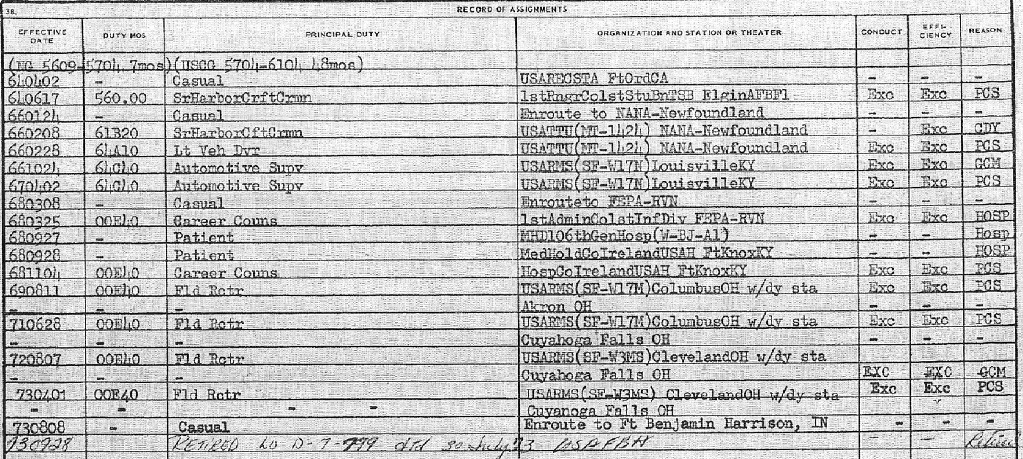 38. RECORD OF ASSIGNMENTS
EFFECTIVE DATE DUTY MOS PRINCIPAL DUTY ORGANIZATION AND STATION OR THEATER CONDUCT EFFI-CIENCY REASON
(NG 5609-5704 7mos)(USCG 5704-6104 48mos)
640402 - Casual USARECSTA FtOrdCA - - -
640617 560.00 SrHarborCrftCrmn 1stRngrCo1stStuBnTSB ElginAFBFl Exc Exc PCS
660124 - Casual Enroute to NANA-Newfoundland - - -
660208 61B20 SrHarborCftCrmn USATTU(MT-1424) NANA-Newfoundland - Exc CDY
660228 64A10 Lt Veh Dvr USATTU(MT-1424) NANA-Newfoundland Exc Exc PCS
661024 64C40 Automotive Supv USARMS(SF-W17N)LouisvilleKY Exc Exc GCM
670402 64C40 Automotive Supv USARMS(SF-W17N)LouisvilleKY Exc Exc PCS
680308 - Casual Enrouteto FEPA-RVN - - -
680325 00E40 Career Couns 1stAdminCo1stInfDiv FEPA-RVN Exc Exc HOSP
680927 - Patient MHD106thGenHosp(W-BJ-A1) - - Hosp
680928 - Patient MedHoldCoIrelandUSAH FtKnoxKY - - HOSP
681104 00E40 Career Couns HospCoIrelandUSAH FtKnoxKY Exc Exc PCS
690811 00E40 Fld Rctr USARMS(SF-W17M)ColumbusOH w/dy sta Exc Exc PCS
- - - Akron OH - - -
710628 00E40 Fld Rctr USARMS(SF-W17M)ColumbusOH w/dy sta Exc Exc PCS
- - - Cuyahoga Falls OH
720807 00E40 Fld Rctr USARMS(SF-W3MS)ClevelandOH w/dy sta
- - - Cuyahoga Falls OH EXC EXC GCM
730401 00E40 Fld Rctr USARMS(SF-W3MS) ClevelandOH w/dy sta Exc Exc PCS
- - - - Cuyanoga Falls OH
730808 - Casual Enroute to Ft Benjamin Harrison, IN - - -
730928 RETIRED LO D-7-779 dtd 30 July 73 USAFBH - - Retired